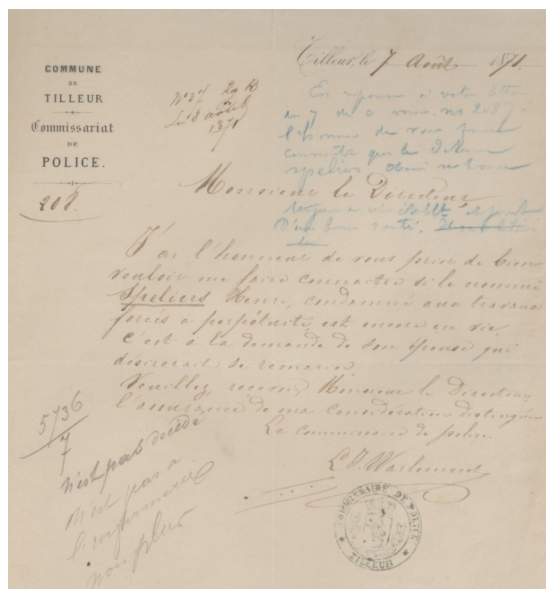 COMMUNE
DE
TILLEUR
Commissariat
DE
POLICE.
208.
Tilleur, le 7 Août 1871.
N° 37 2a B
Le 8 août
1871
En réponse à votre lettre
du 7 de ce mois, no 208, j'ai
l'honneur de vous faire
connaître que le détenu
Speliers Henri se trouve
en vie et jouit
d'une bonne santé.
Monsieur le Directeur,
J'ai l'honneur de vous prier de bien
vouloir me faire connaître si le nommé
Speliers Henri, condamné aux travaux
forcés à perpétuité est encore en vie.
C'est à la demande de son épouse qui
désirerait se remarier.
Veuillez recevoir, Monsieur le Directeur,
l'assurance de ma considération distinguée
Le commissaire de police
L. J. Warlimont
5736
7
n'est pas décédé
n'est pas à
l'infirmerie
non plus
COMMISSAIRE DE POLICE
TILLEUR